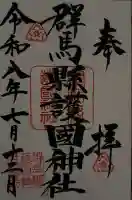 奉拝
群馬縣護國神社
令和八年七月十二日